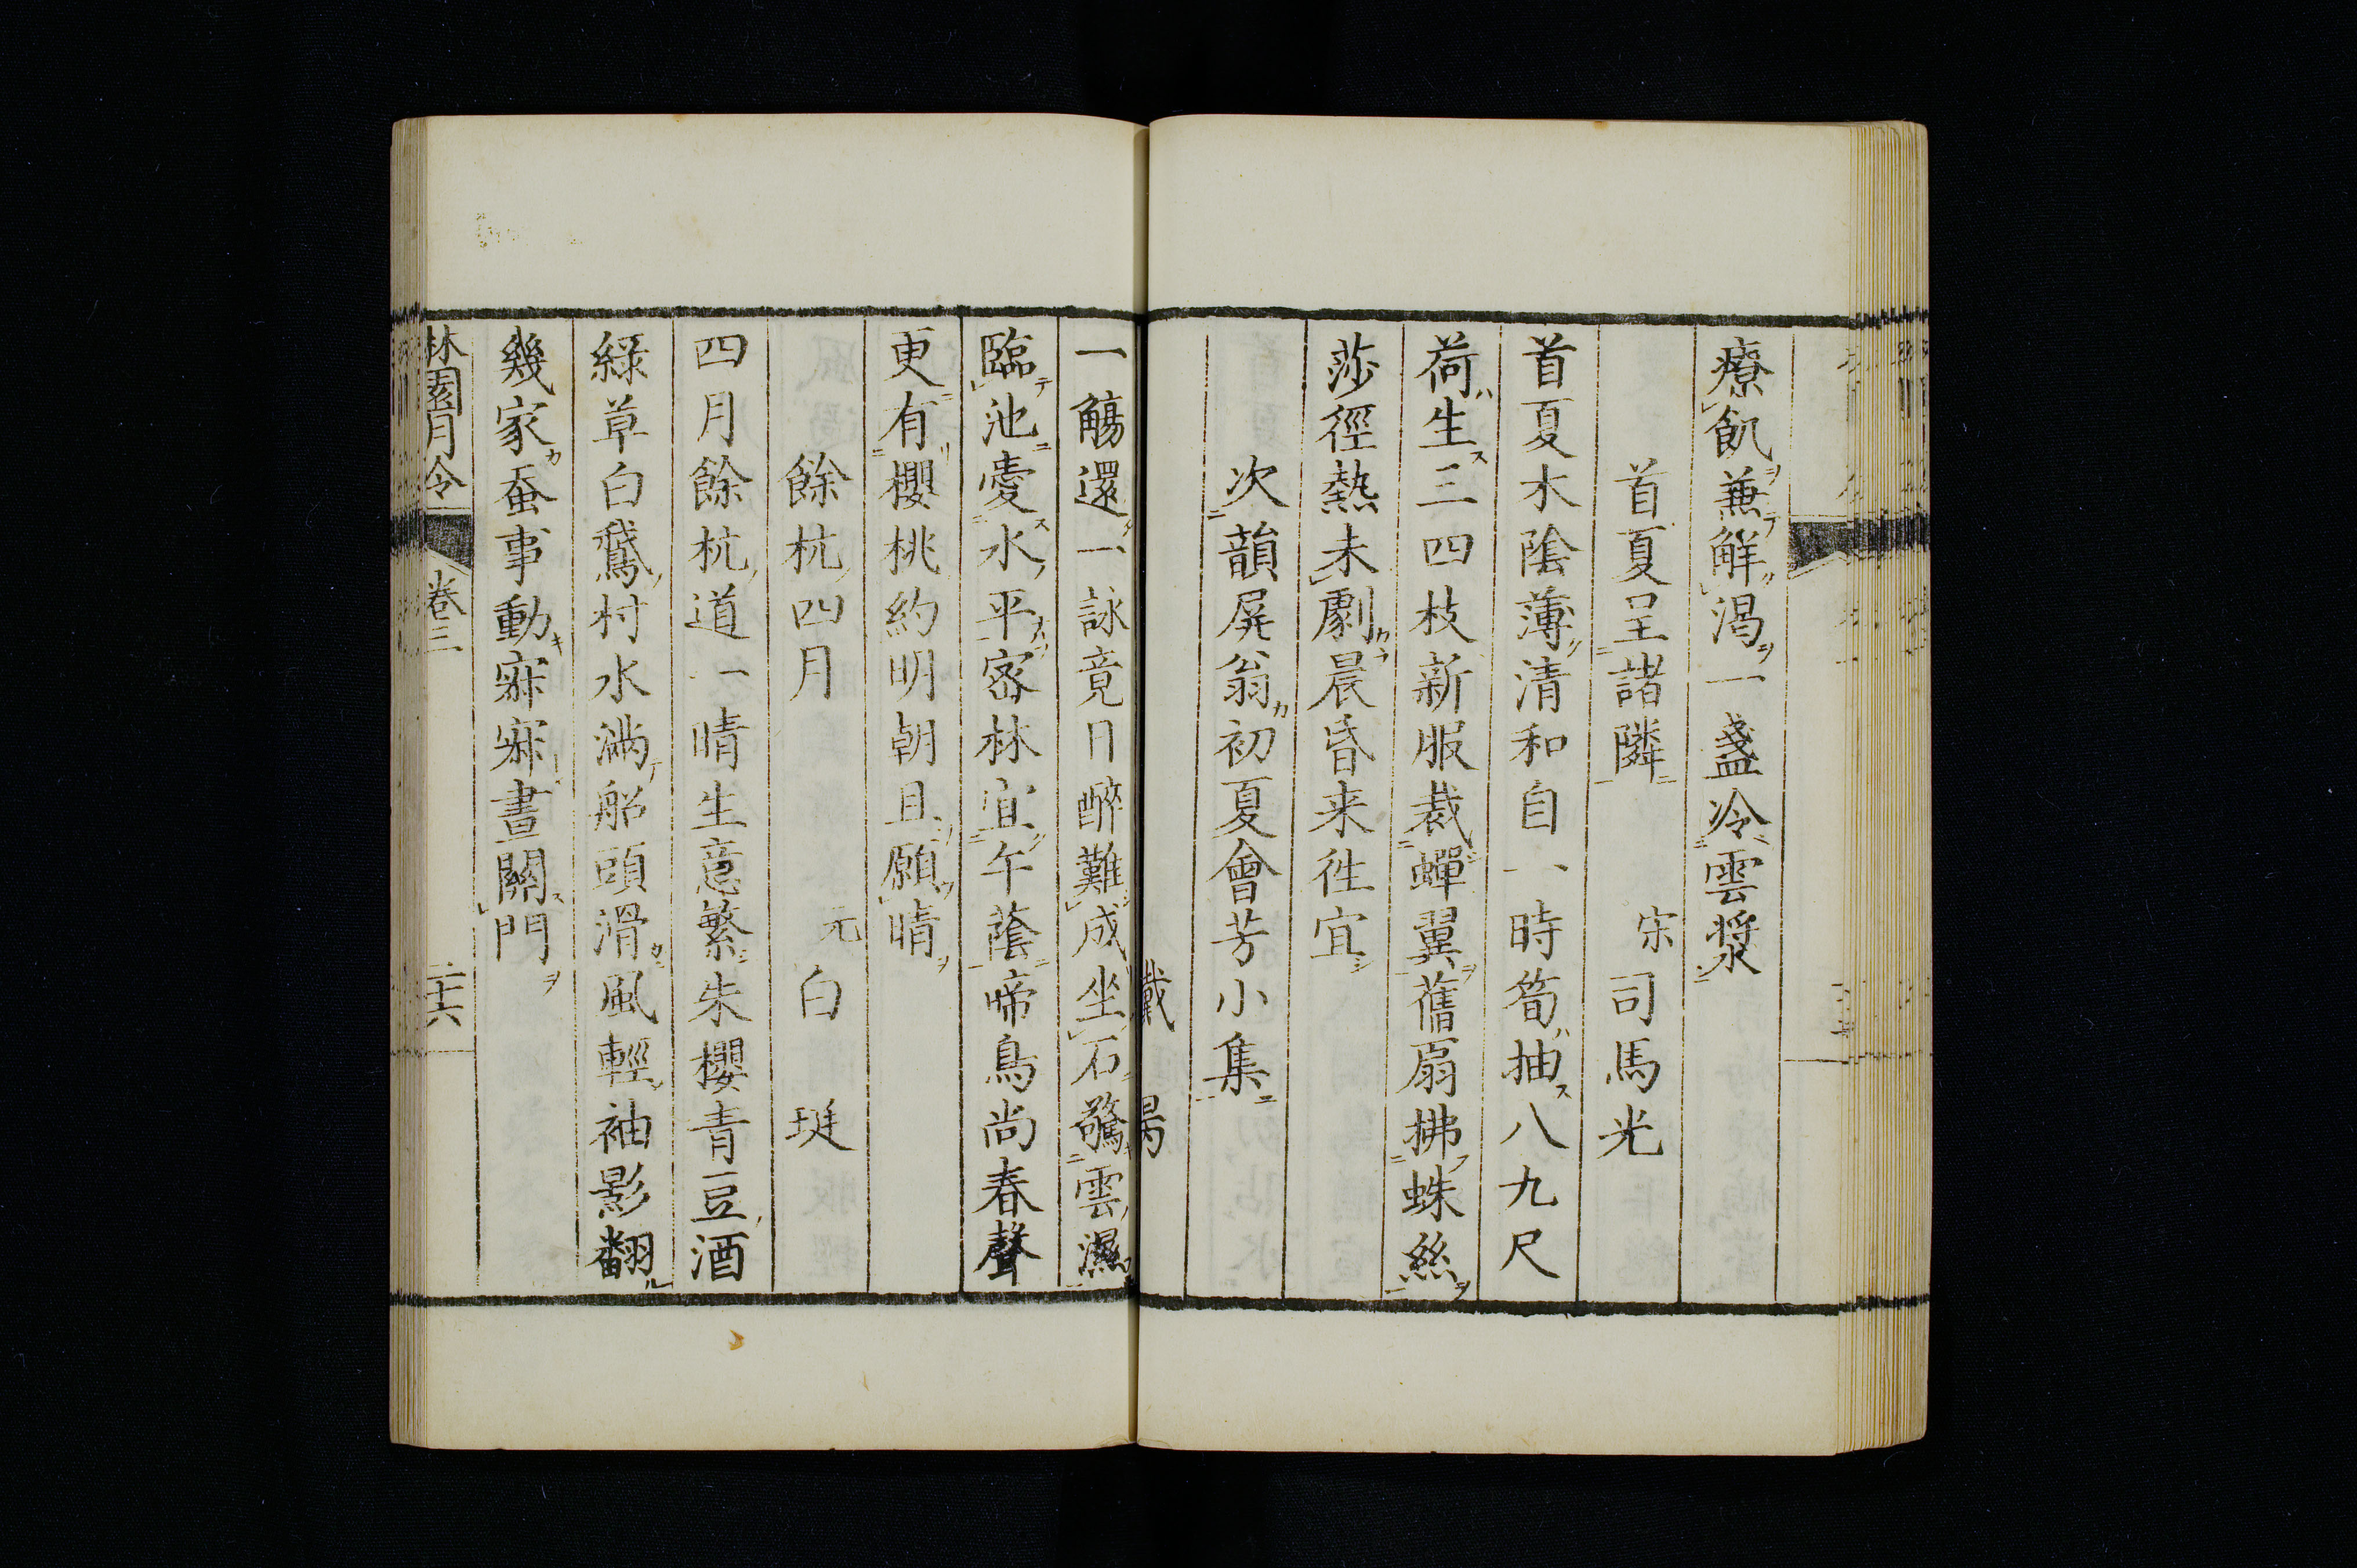 療飢兼解渴一盞冷雲漿
首夏呈諸隣　宋司馬光
首夏木陰薄清和自一時筍抽八九尺
荷生三四枝新服裁蟬翼舊扇拂蛛絲
莎徑熱未劇晨昏来徃宜
次韻屏翁初夏會芳小集
戴昺
一觴還一詠竟日醉難成坐石驚雲濕
臨池愛水平密林宜午蔭啼鳥尚春聲
更有櫻桃約明朝且願晴
餘杭四月　元白珽
四月餘杭道一晴生意繁朱櫻青豆酒
綠草白鵞村水滿船頭滑風輕袖影翻
幾家蚕事動寂寂晝關門
林園月令　卷三　二十六